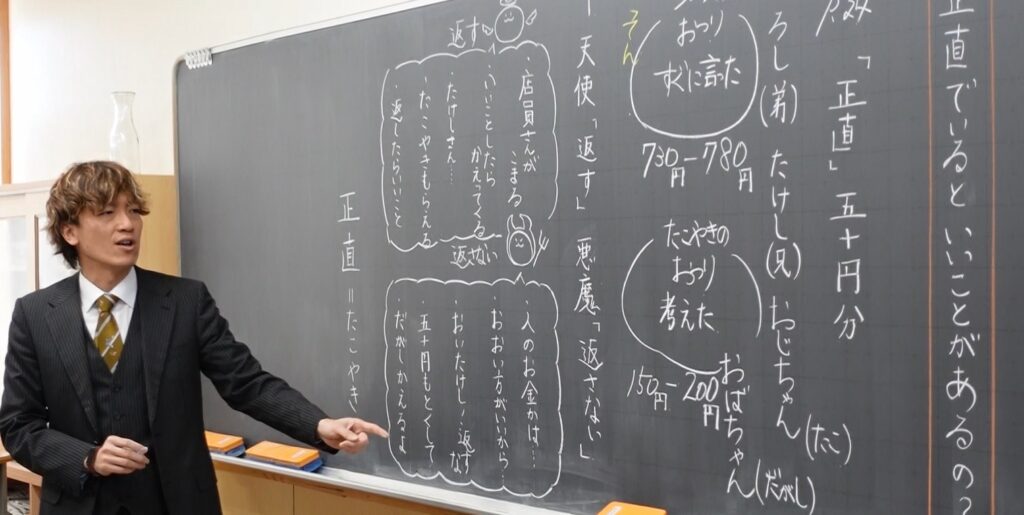 正直でいるといいことがあるの？
「正直」五十円分
ろし(弟) たけし(兄) おじちゃん(たこ)
おばちゃん(だがし)
おつり
すぐに言った
そん
730円－780円
たこやきの
おつり
考えた
150円－200円
天使「返す」 悪魔「返さない」
返す
・店員さんが
こまる
・いいことしたら
かえってくる
・たけしさん…
・たこやきもらえる
・返したらいいこと
返さない
・人のお金かは…
・おおい方がいいから
・おいたけし！返すな
・五十円もとくして
・だがしかえるよ
正直＝たこやき